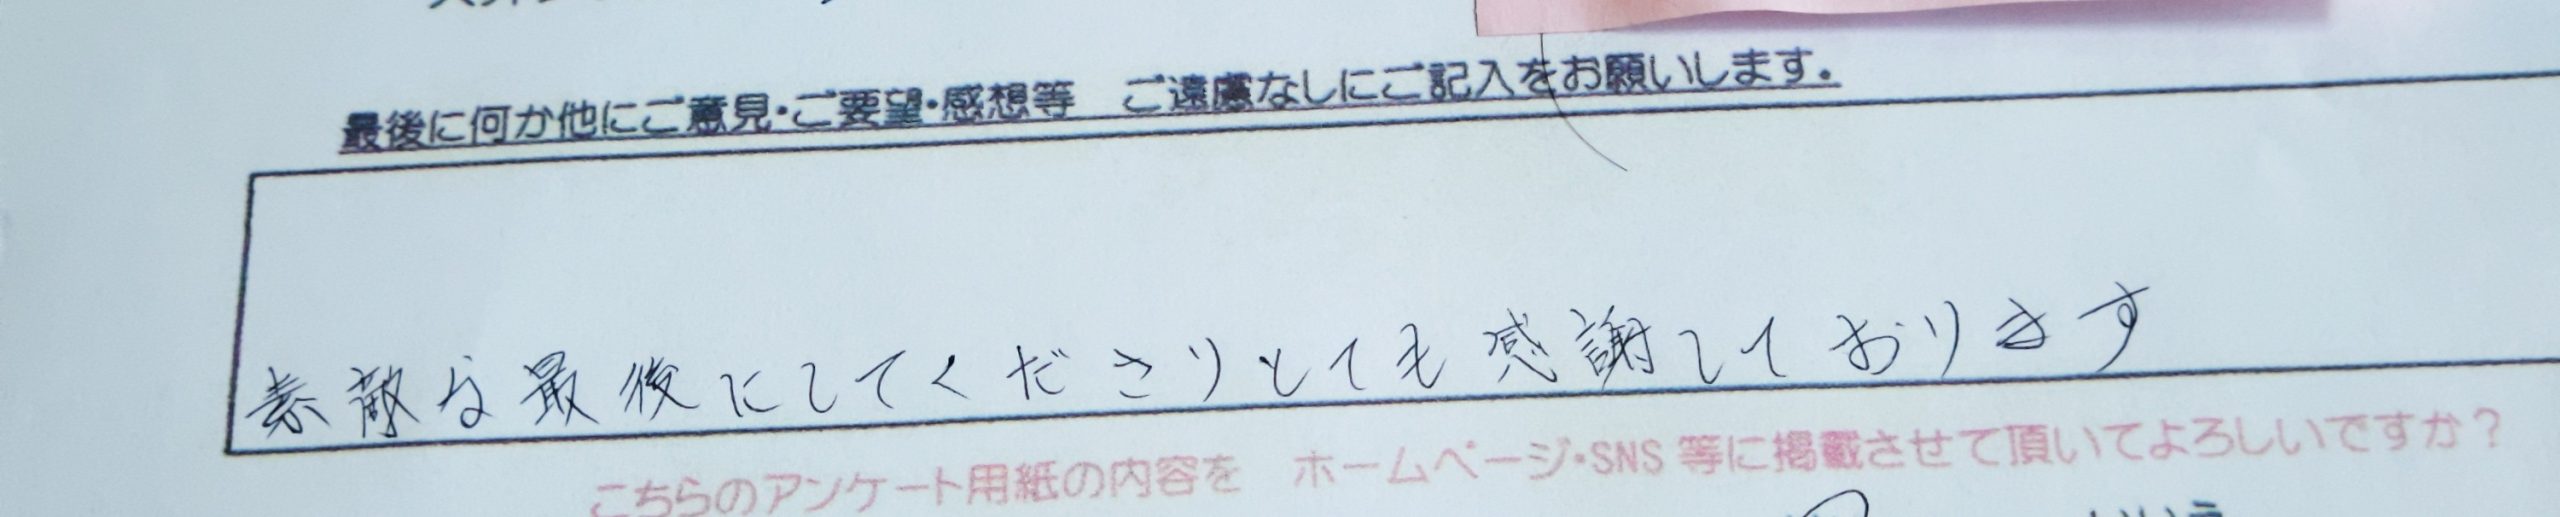 最後に何か他にご意見・ご要望・感想等　ご遠慮なしにご記入をお願いします。
素敵な最後にしてくださりとても感謝しております
こちらのアンケート用紙の内容を　ホームページ・SNS 等に掲載させて頂いてよろしいですか？